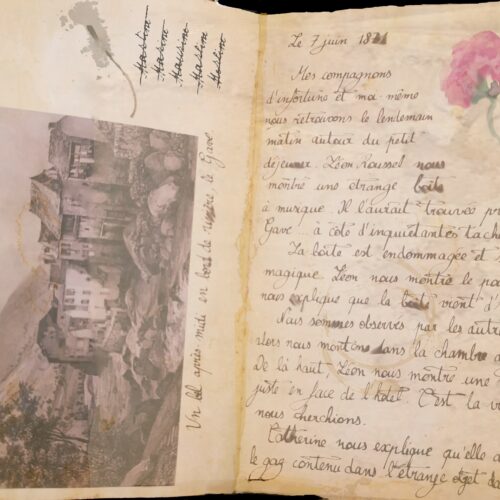 Un bel après midi en bord de rivière, le Gave.
Le 7 juin
Mes compagnons
d'infortune et moi-même
nous retrouvons le lendemain
matin autour du petit
déjeuner. Léon Roussel nous
montre une étrange boîte
à musique. Il l'aurait trouvée pr
Gave... à côté d'inquiétantes tache
La boîte est endommagée et
magique. Léon nous montre le po
nous explique que la boîte vient
Nous sommes observés par les autre
alors nous montons dans la chambre d
De là haut, Léon nous montre une
juste en face de l'hôtel. C'est la vi
nous cherchions.
Catherine nous explique qu'elle a
le gag contenu dans l'étrange objet da